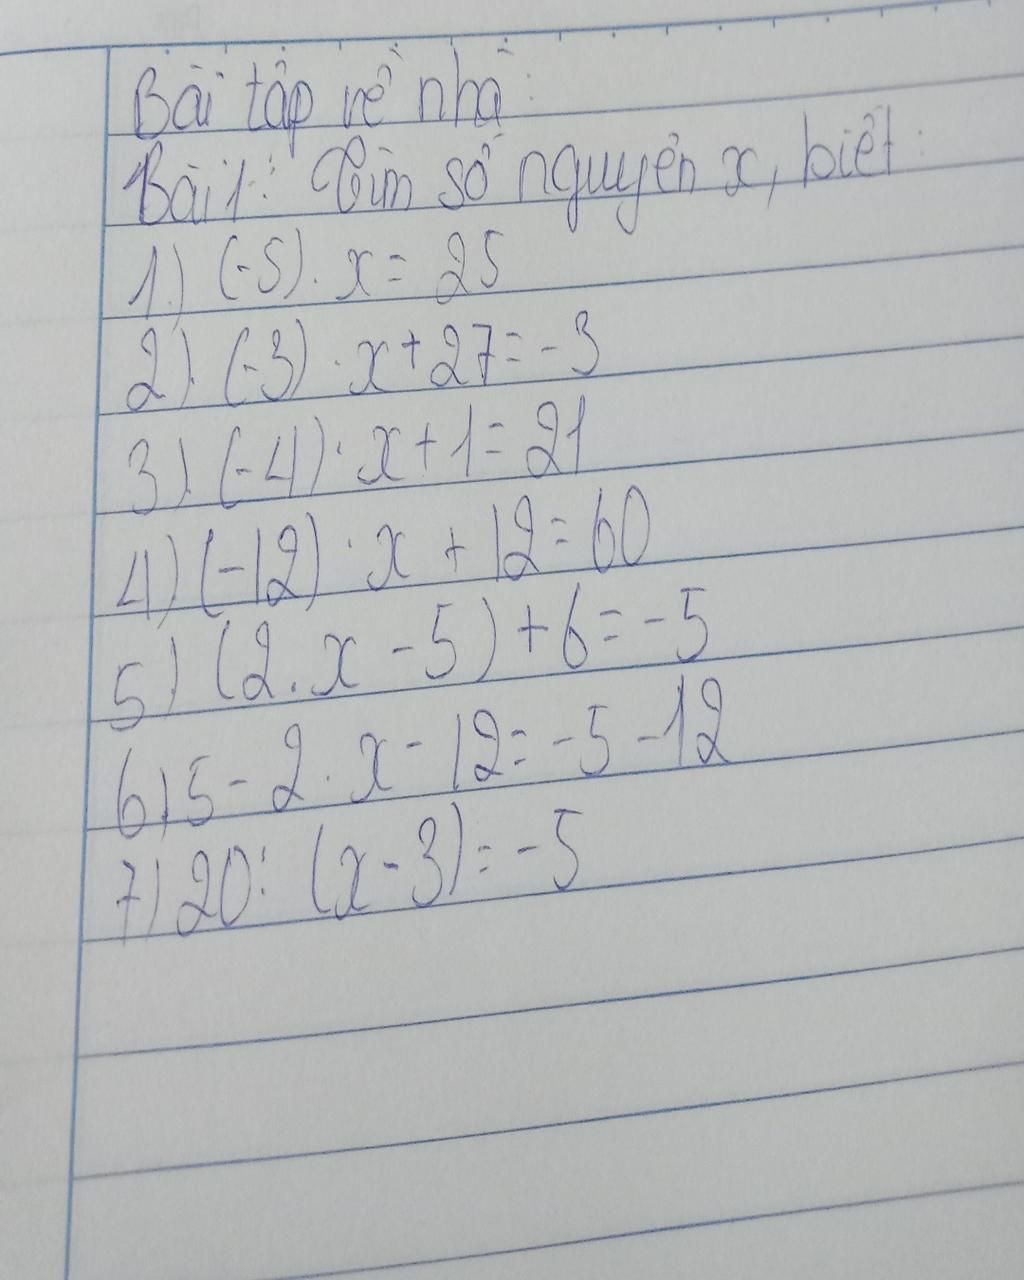 Bài tập về nhà:
Bài 1: Tìm số nguyên x, biết:
1) (-5) . x = 25
2) (-3) . x + 27 = -3
3) (-4) . x + 1 = 21
4) (-12) . x + 12 = 60
5) (2 . x - 5) + 6 = -5
6) 5 - 2 . x - 12 = -5 - 12
7) 20 : (x - 3) = -5